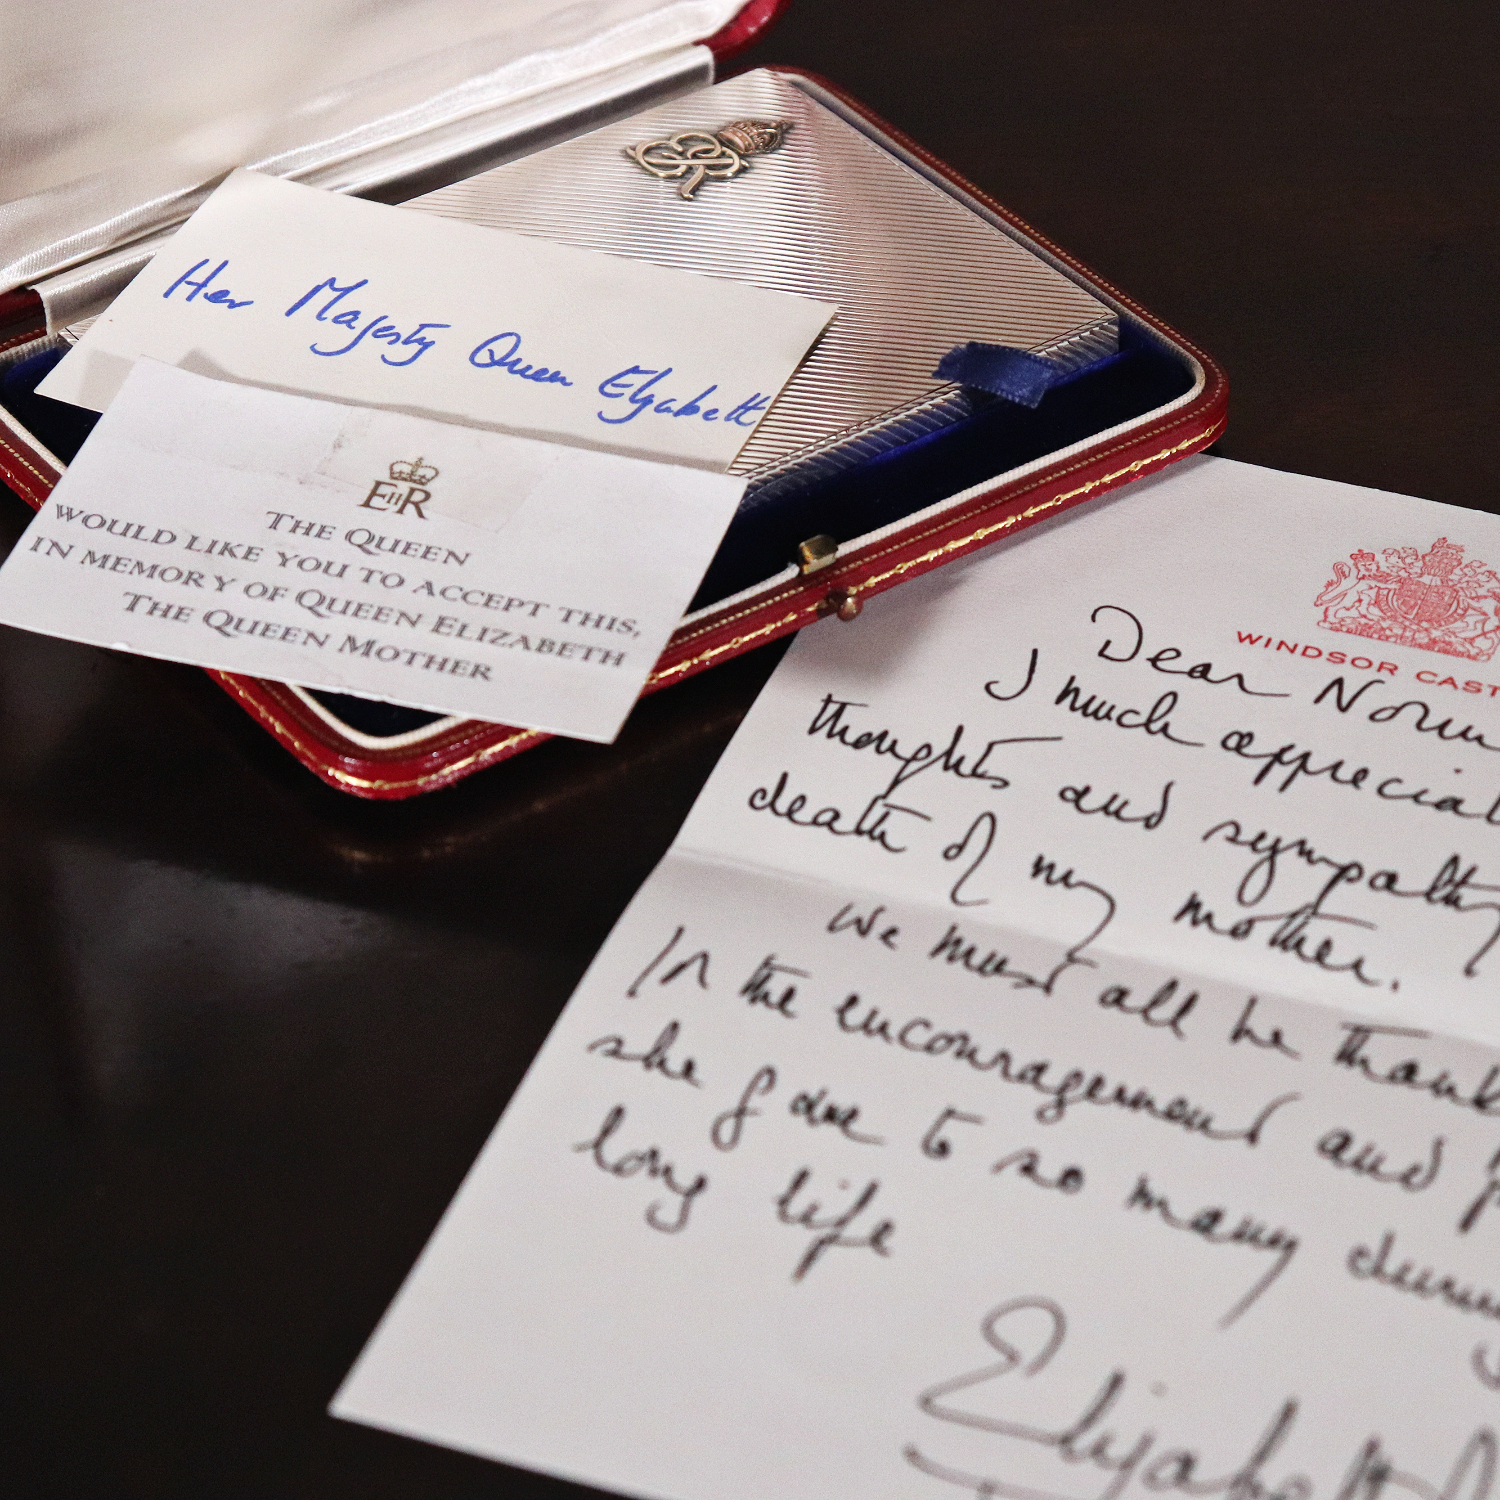 Her Majesty Queen Elizabeth
EIIR
THE QUEEN
WOULD LIKE YOU TO ACCEPT THIS,
IN MEMORY OF QUEEN ELIZABETH
THE QUEEN MOTHER
WINDSOR CAST
Dear Norm
I much appreciat
thoughts and sympathy
death of my mother.
We must all be thank
for the encouragement and
she gave to so many during
long life
Elizabeth R